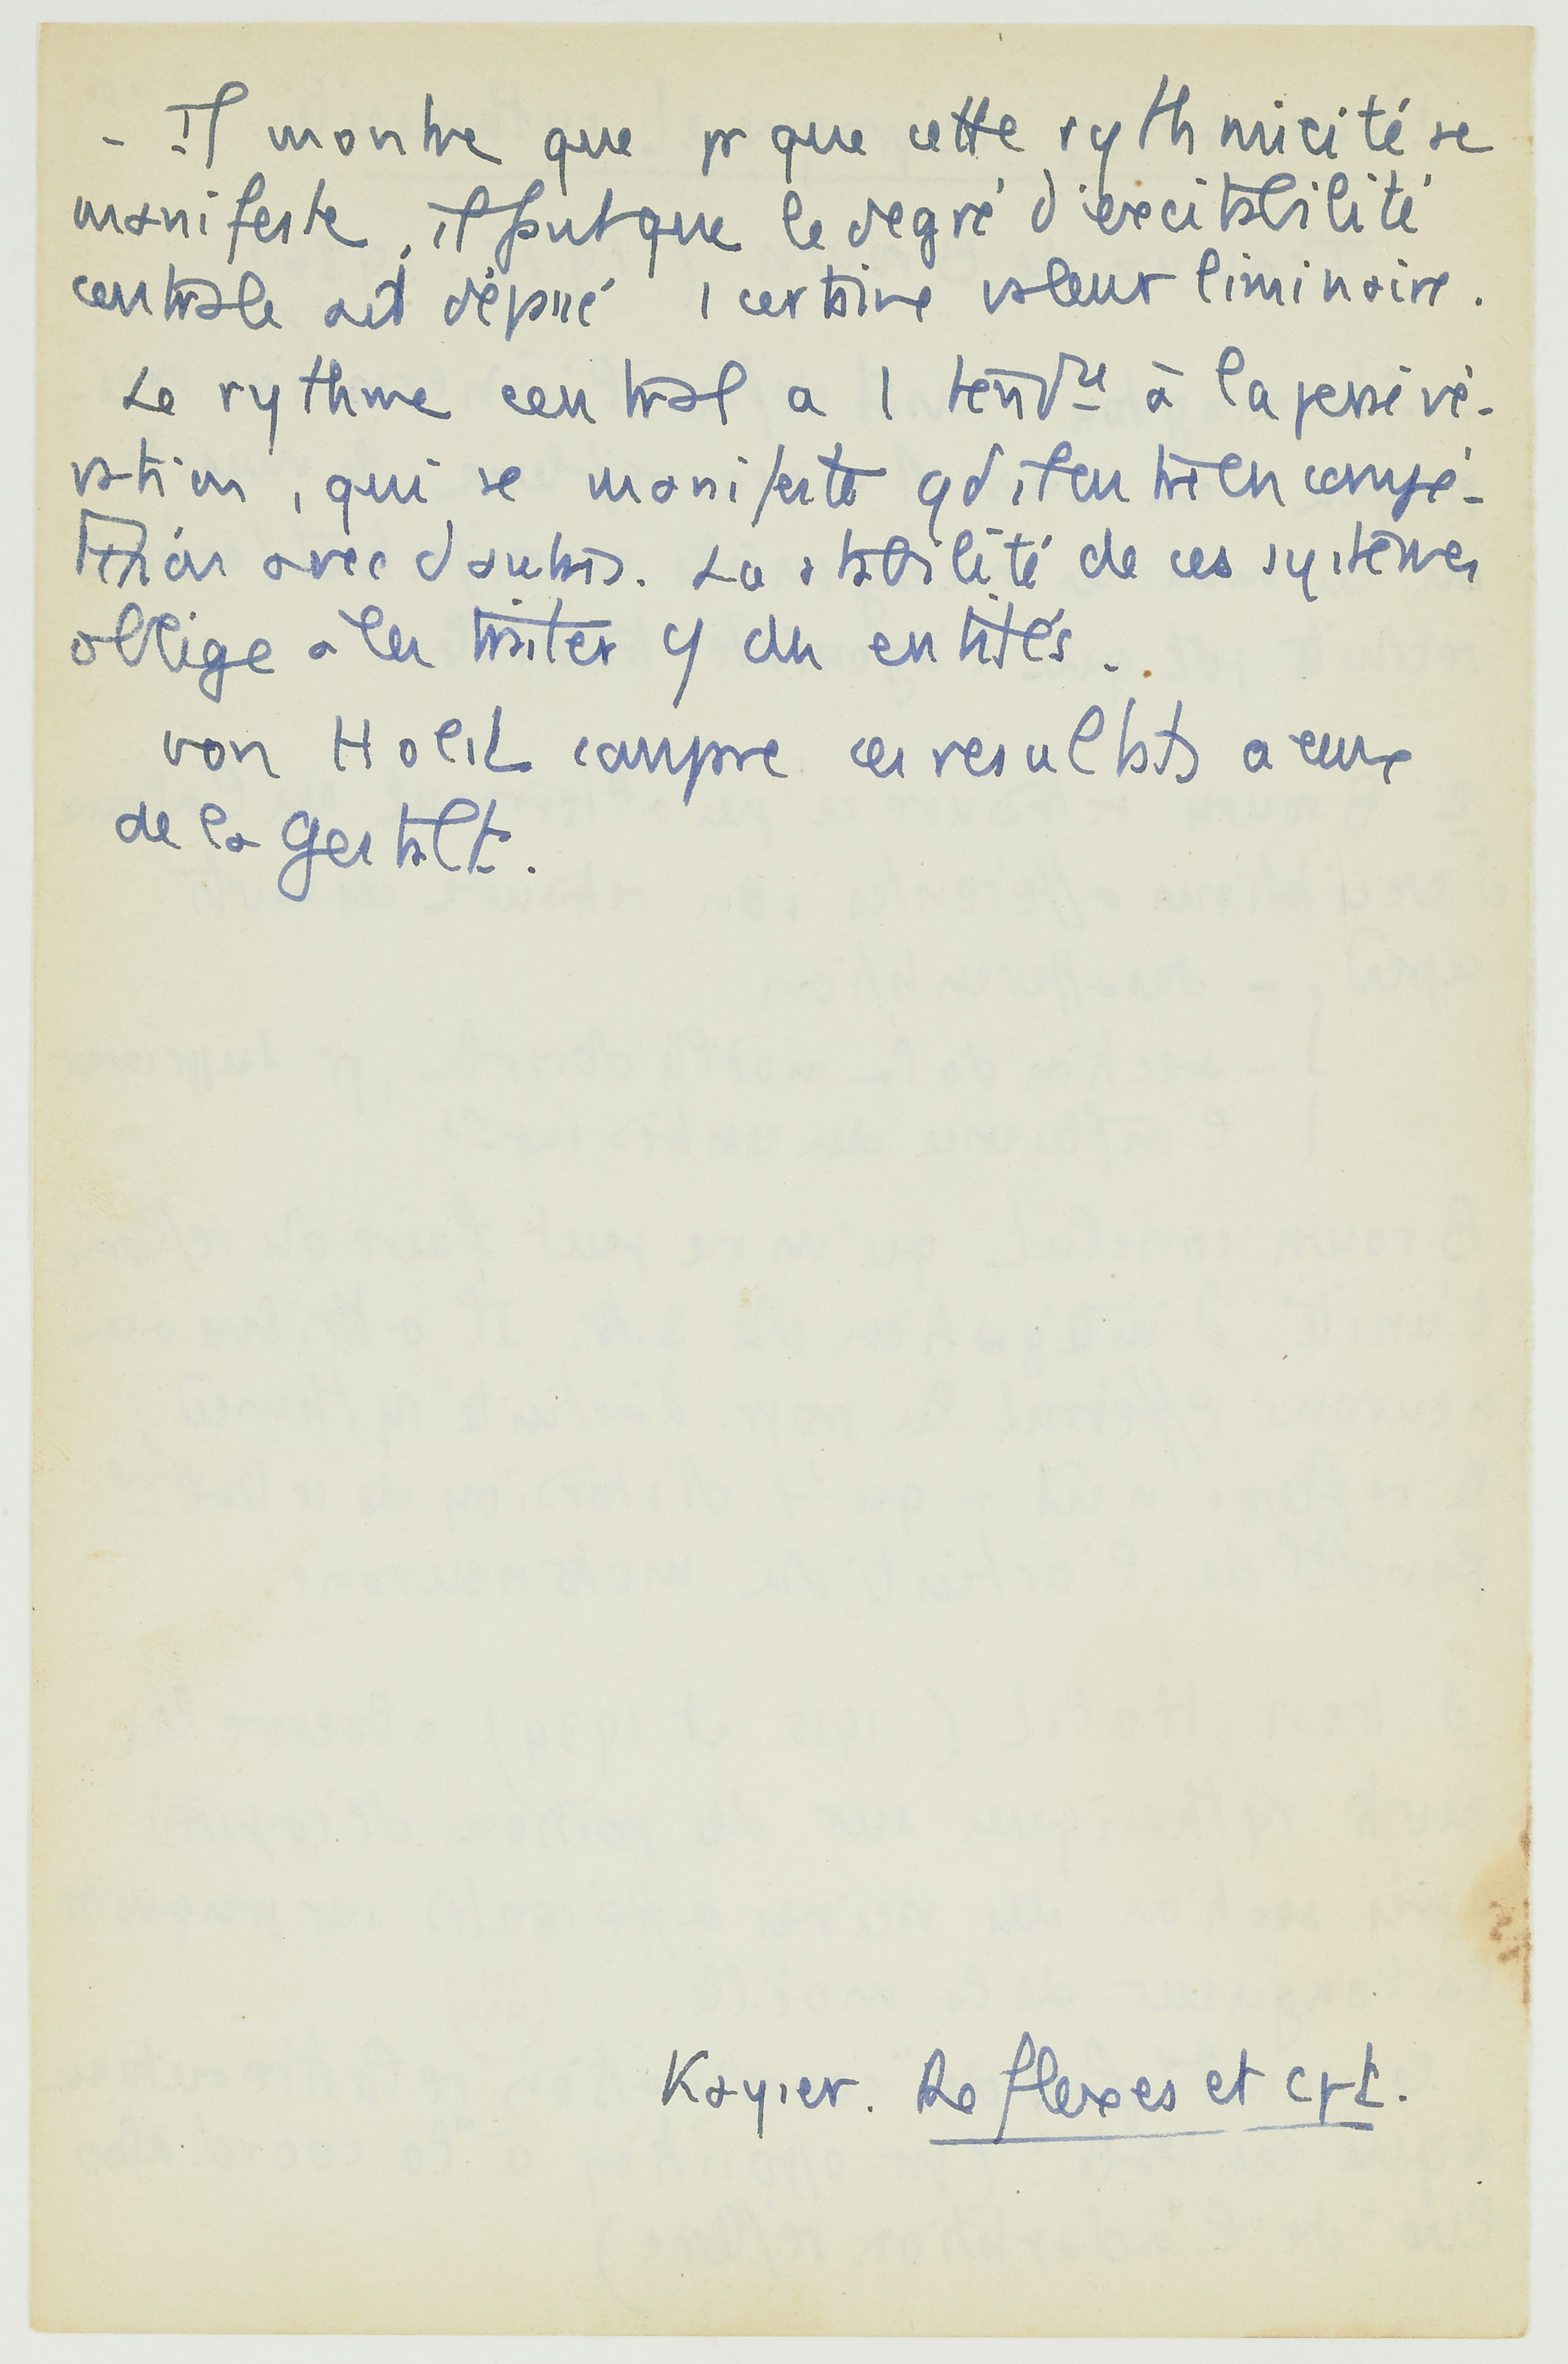 - Il montre que pr que cette rythmicité se
manifeste, il faut que le degré d'excitabilité
centrale ait dépassé 1 certaine valeur liminaire.
Le rythme central a 1 tendce à la persévé-
ration, qui se manifeste qd il entre en compé-
tition avec d'autres. La stabilité de ces systèmes
oblige à les traiter cf des entités.
von Holst compare ces resultats a ceux
de la Gestalt.
Kayser. Reflexes et cpt.